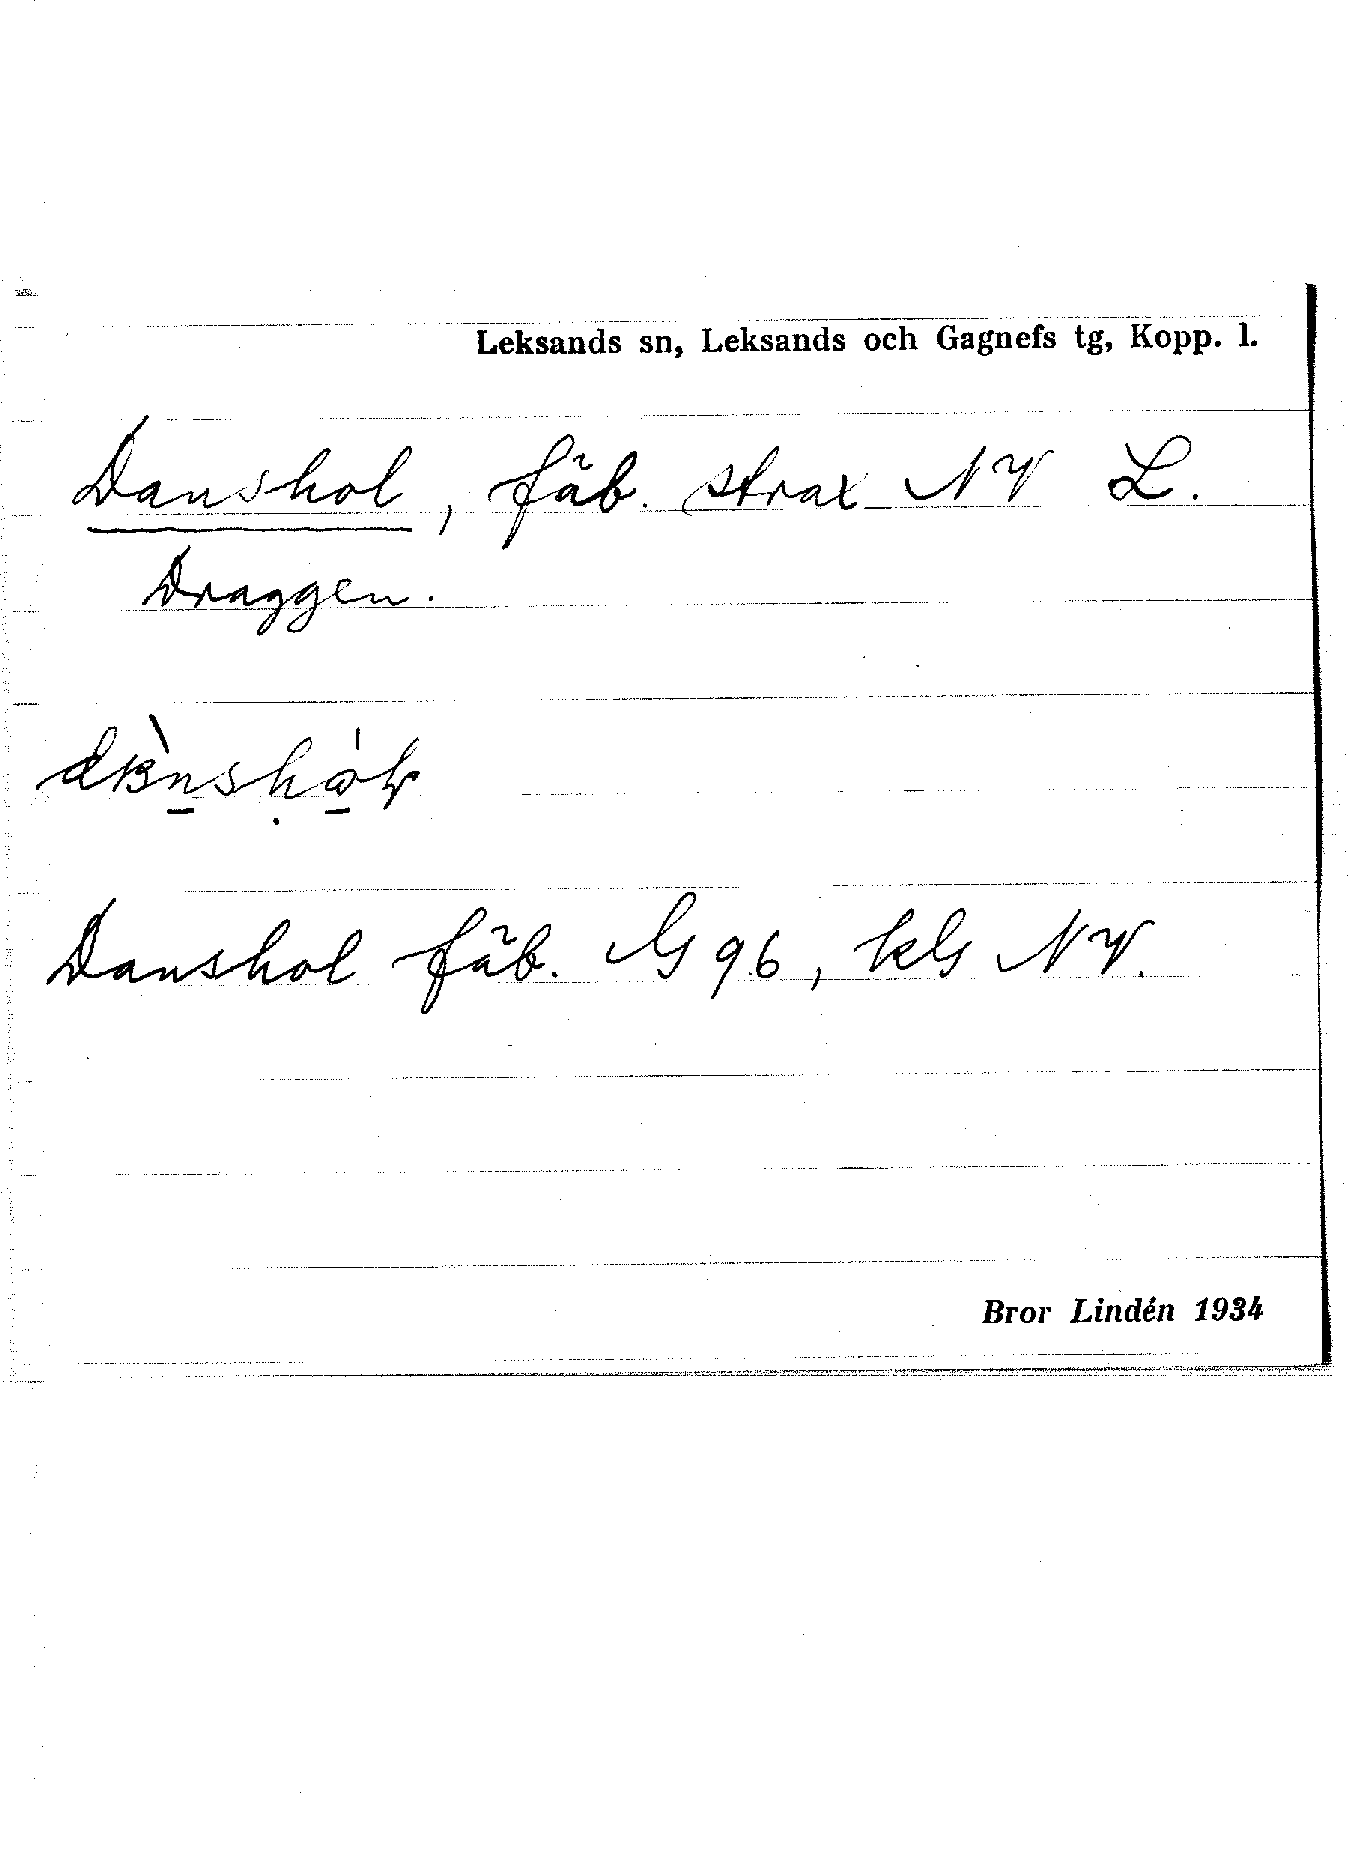 Leksands sn, Leksands och Gagnefs tg, Kopp. l.
Danshol, fäb. strax NV L.
Draggen.
Danshol fäb. G 96, kls NV.
Bror Lindén 1934